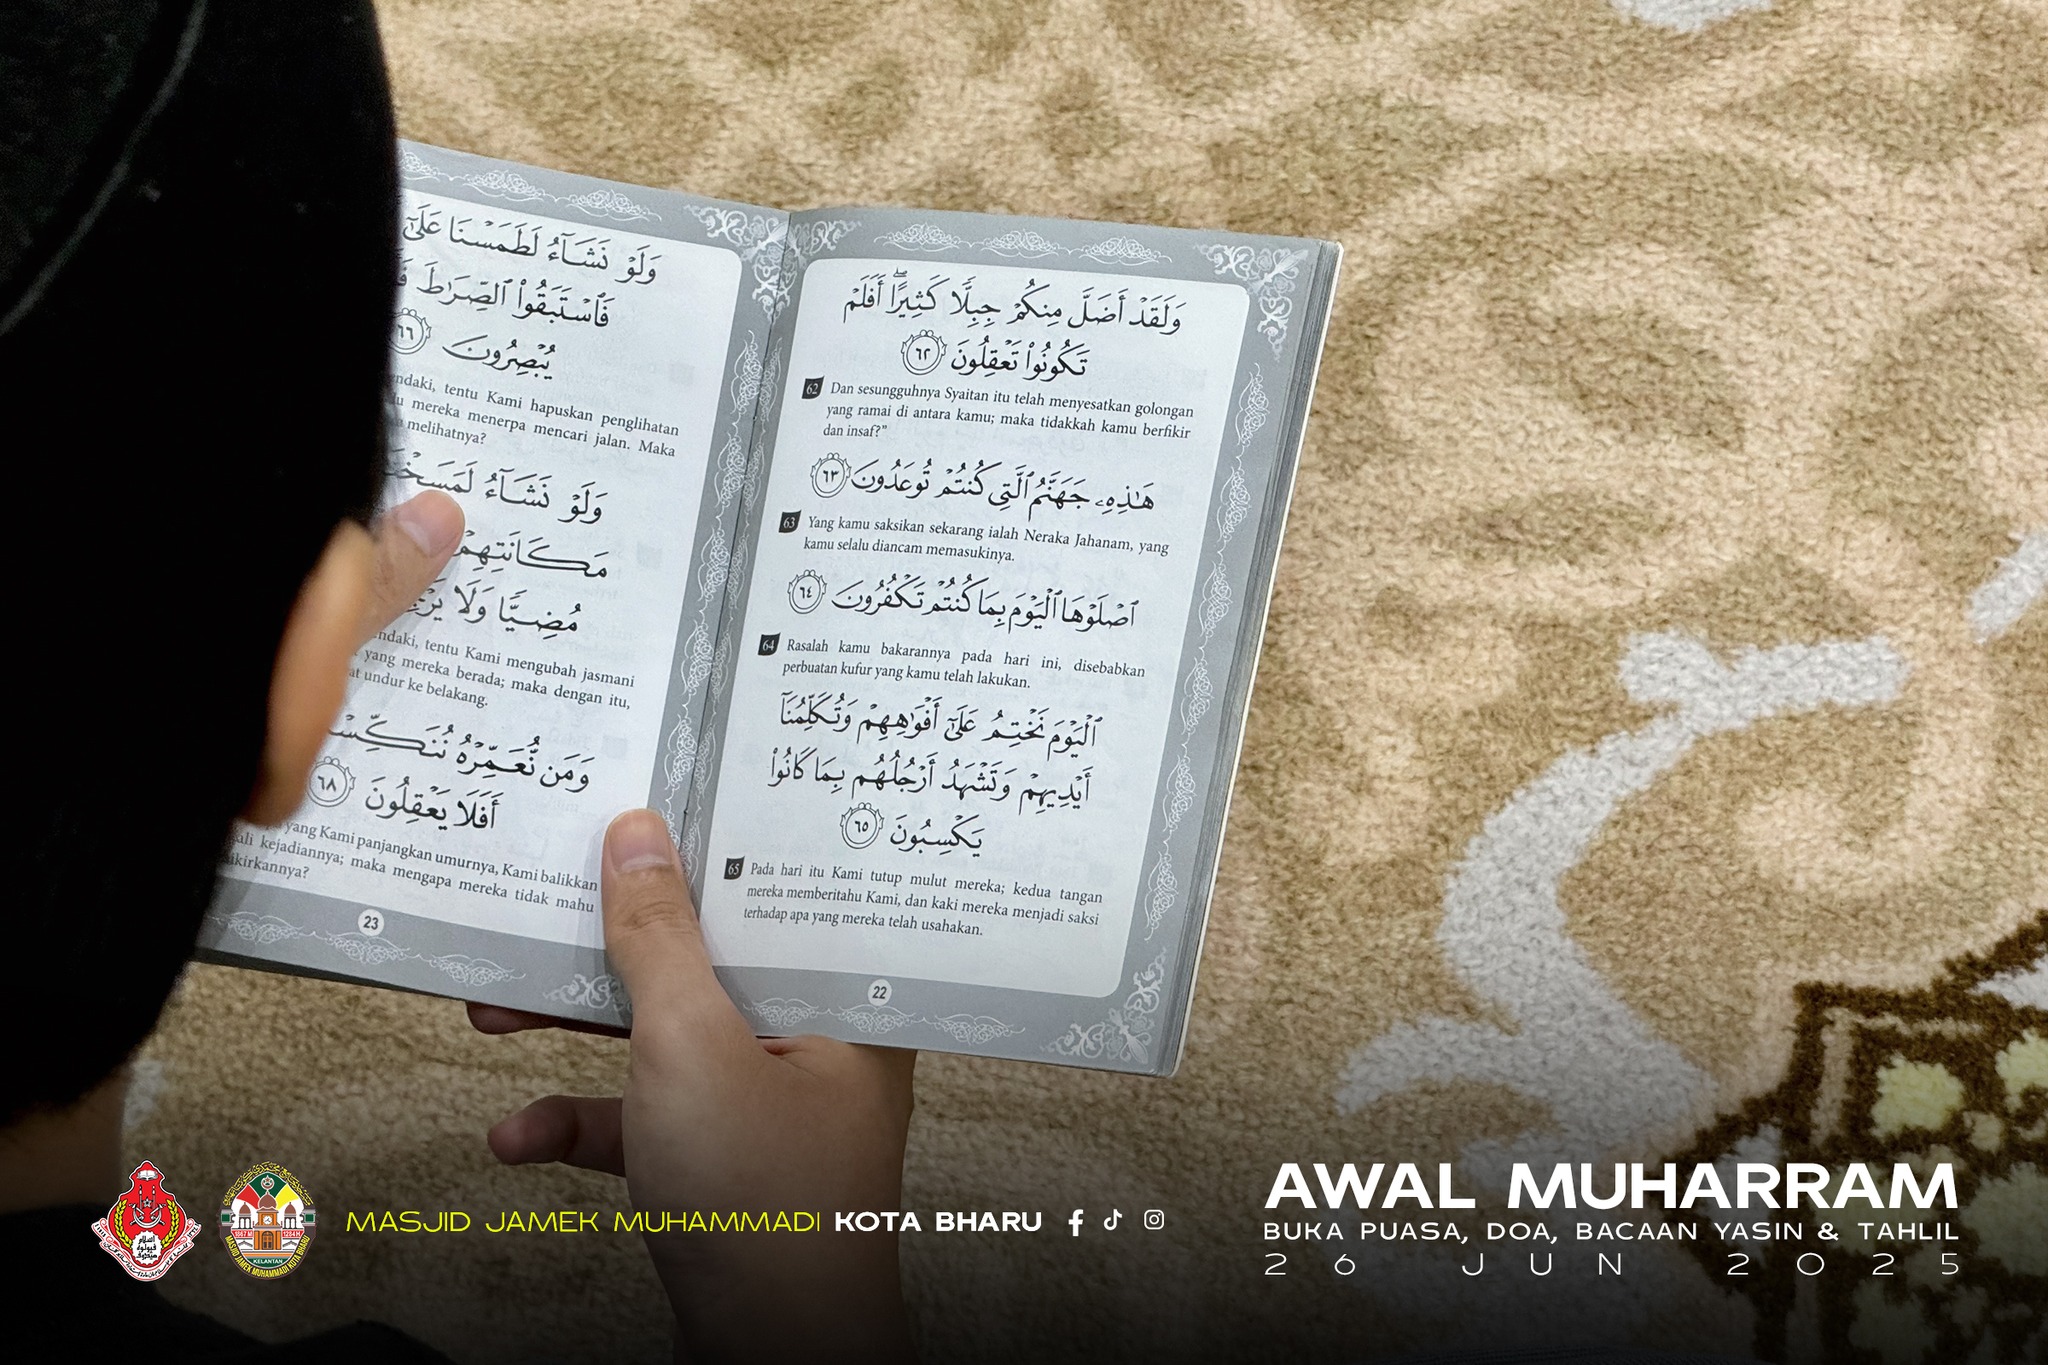 وَلَقَدْ أَضَلَّ مِنكُمْ جِبِلًّا كَثِيرًا ۖ أَفَلَمْ
تَكُونُوا۟ تَعْقِلُونَ ٦٢
62 Dan sesungguhnya Syaitan itu telah menyesatkan golongan
yang ramai di antara kamu; maka tidakkah kamu berfikir
dan insaf?"
هَـٰذِهِۦ جَهَنَّمُ ٱلَّتِى كُنتُمْ تُوعَدُونَ ٦٣
63 Yang kamu saksikan sekarang ialah Neraka Jahanam, yang
kamu selalu diancam memasukinya.
ٱصْلَوْهَا ٱلْيَوْمَ بِمَا كُنتُمْ تَكْفُرُونَ ٦٤
64 Rasalah kamu bakarannya pada hari ini, disebabkan
perbuatan kufur yang kamu telah lakukan.
ٱلْيَوْمَ نَخْتِمُ عَلَىٰٓ أَفْوَٰهِهِمْ وَتُكَلِّمُنَآ
أَيْدِيهِمْ وَتَشْهَدُ أَرْجُلُهُم بِمَا كَانُوا۟
يَكْسِبُونَ ٦٥
65 Pada hari itu Kami tutup mulut mereka; kedua tangan
mereka memberitahu Kami, dan kaki mereka menjadi saksi
terhadap apa yang mereka telah usahakan.
22
وَلَوْ نَشَآءُ لَطَمَسْنَا عَلَىٰٓ
فَٱسْتَبَقُوا۟ ٱلصِّرَٰطَ
يُبْصِرُونَ ٦٦
tentu Kami hapuskan penglihatan
mereka menerpa mencari jalan. Maka
melihatnya?
وَلَوْ نَشَآءُ
مَكَانَتِهِمْ
مُضِيًّا وَلَا
tentu Kami mengubah jasmani
yang mereka berada; maka dengan itu,
undur ke belakang.
وَمَن نُّعَمِّرْهُ
أَفَلَا يَعْقِلُونَ ٦٨
yang Kami panjangkan umurnya, Kami balikkan
kejadiannya; maka mengapa mereka tidak mahu
23
MASJID JAMEK MUHAMMADI KOTA BHARU
AWAL MUHARRAM
BUKA PUASA, DOA, BACAAN YASIN & TAHLIL
26 JUN 2025
1867 M 1284 H
KELANTAN
MASJID JAMEK MUHAMMADI KOTA BHARU